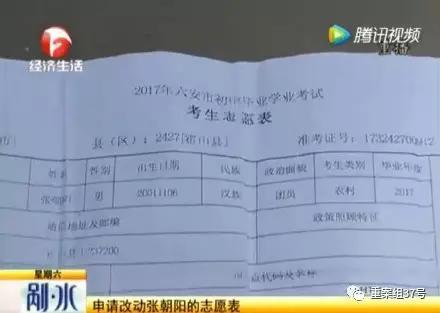 经济生活
腾讯视频
2017年六安市初中毕业学业考试
考生志愿表
县(区):2427[霍山县]
准考证号:
性别 出生日期 民族 政治面貌 考生类别 毕业年度
男 20011106 汉族 团员 农村 2017
政策照顾特征
237200
星期六
剐·水
申请改动张朝阳的志愿表
重案组37号